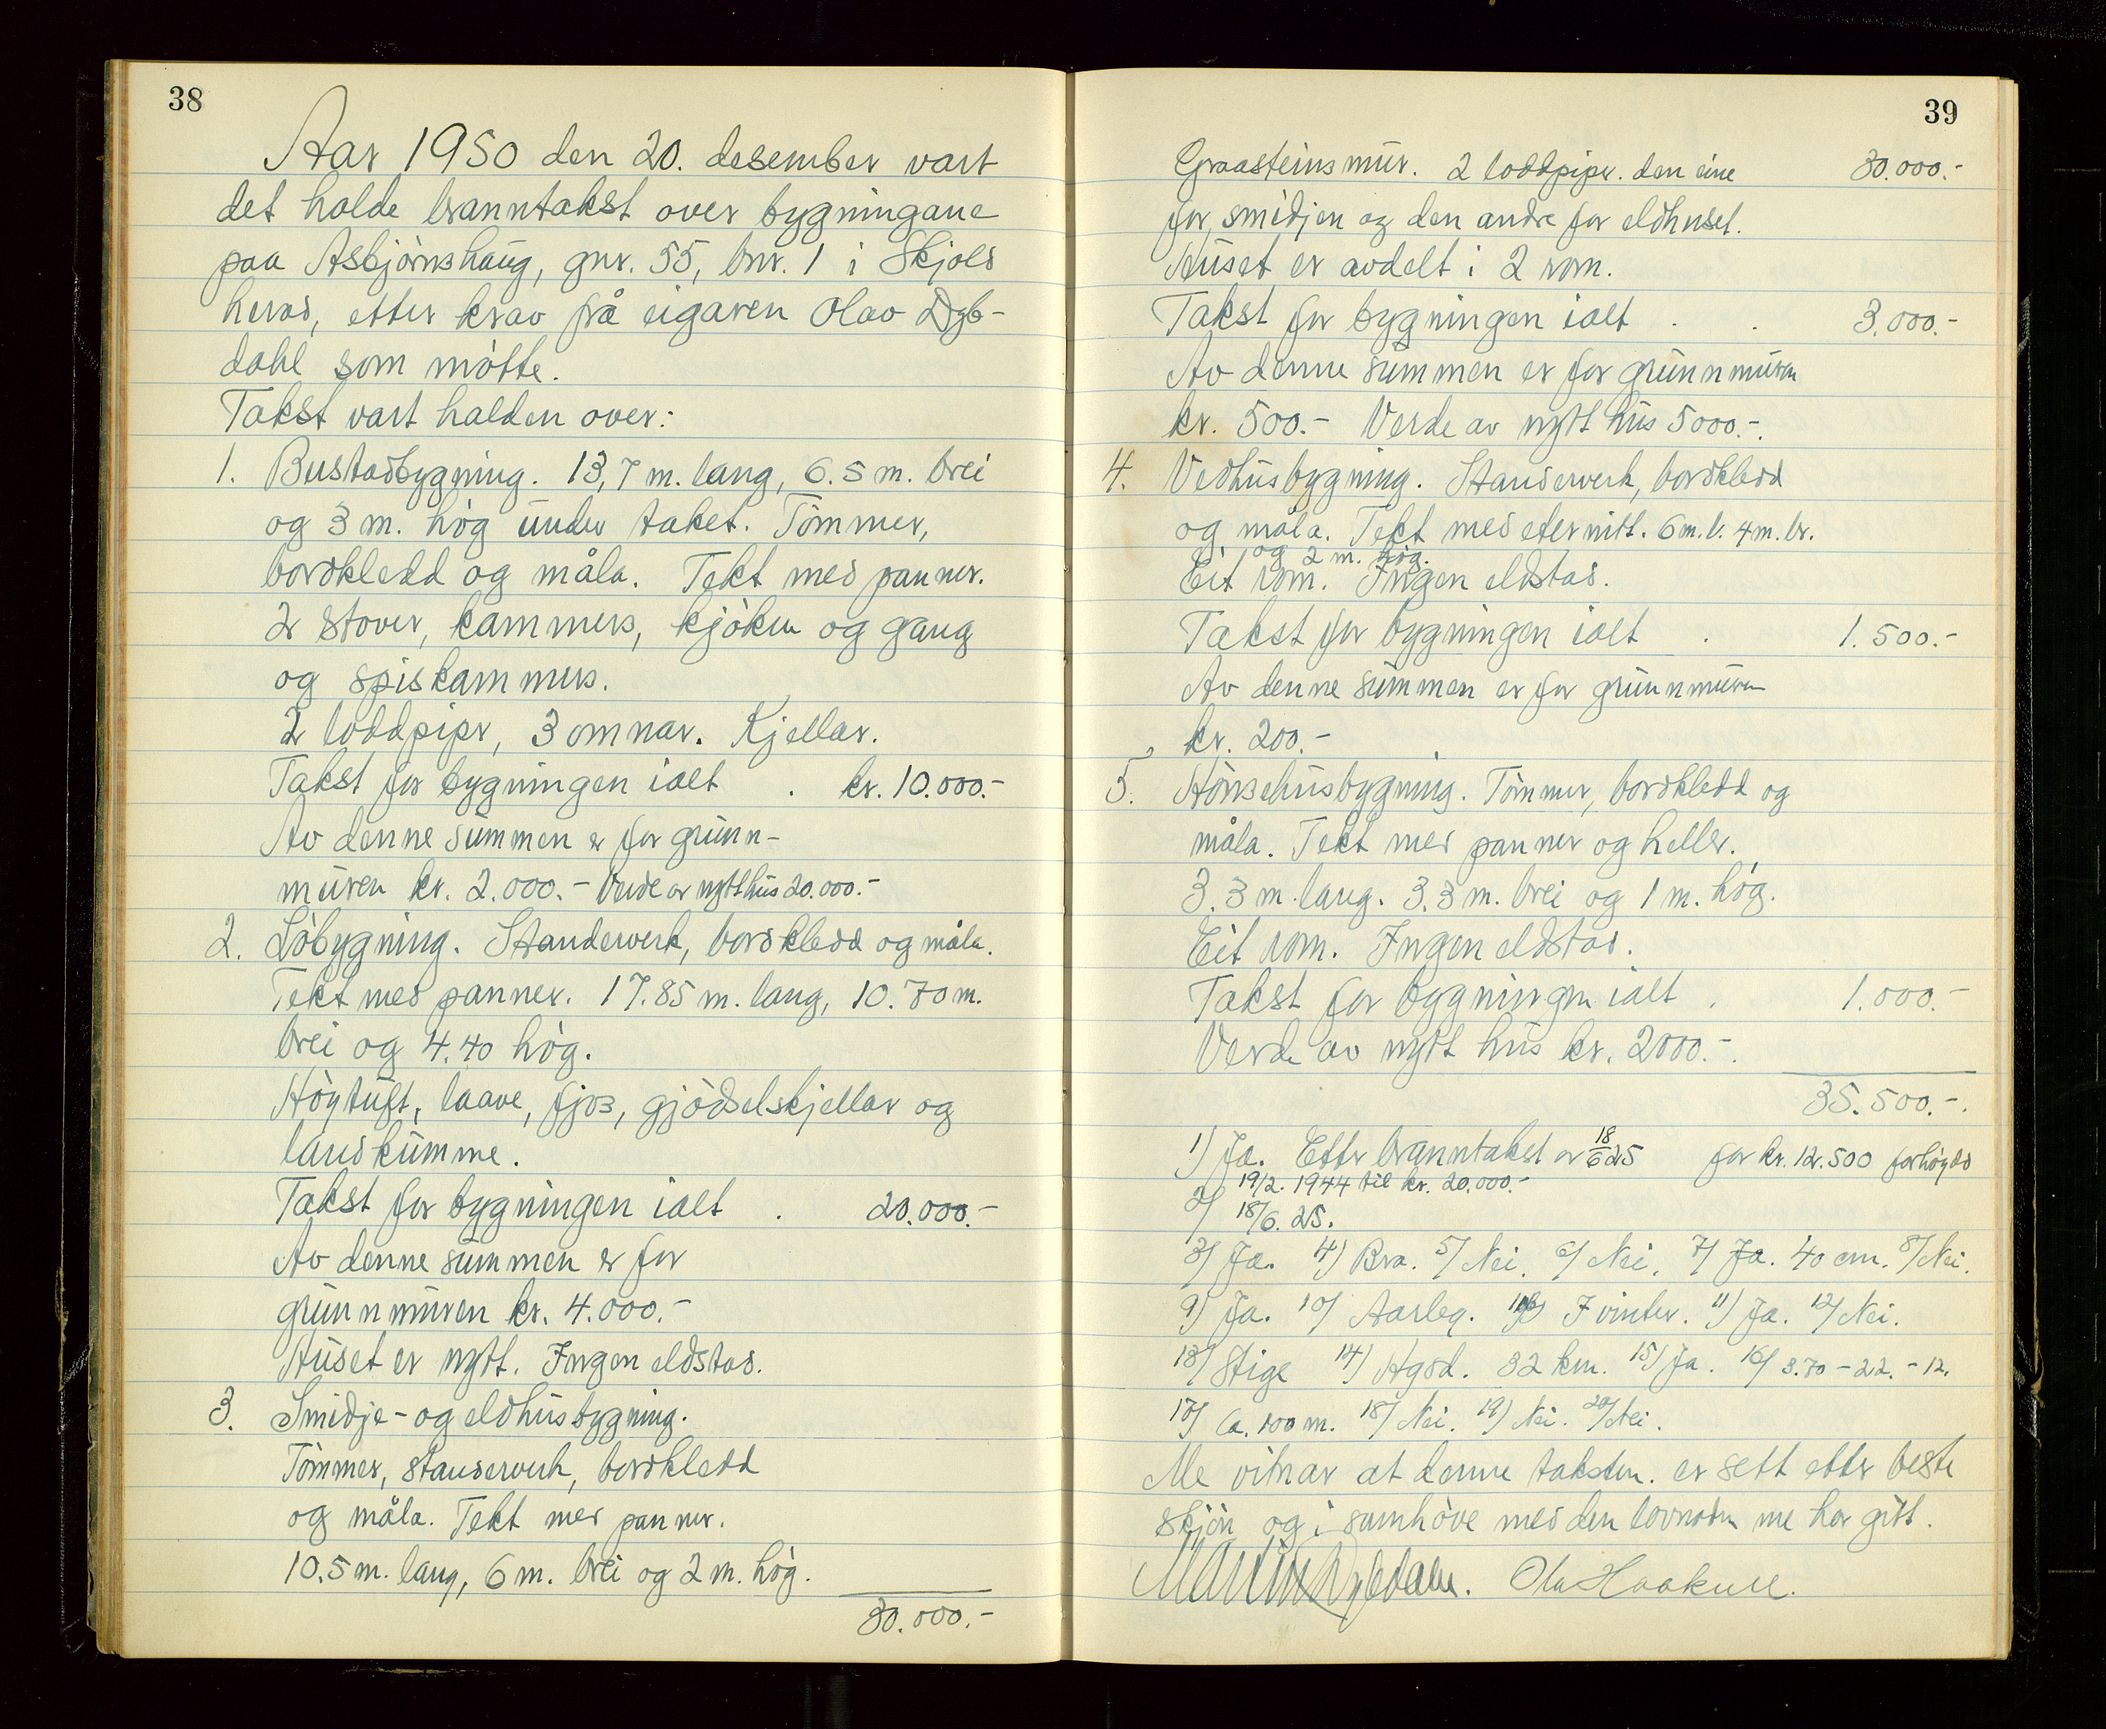 38
Aar 1950 den 20. desember vart
det halde branntakst over bygningane
paa Asbjørnshaug, gnr. 55, bnr. 1 i Skjold
herad, etter krav frå eigaren Olav Dyb-
dahl som møtte.
Takst vart halden over:
1. Bustadbygning. 13,7 m. lang, 6.5 m. brei
og 3 m. høg under taket. Tømmer,
bordkledd og måla. Tekt med panner.
2 stover, kammers, kjøken og gang
og spiskammers.
2 loddpipr, 3 omnar. Kjellar.
Takst for bygningen ialt . kr. 10.000.-
Av denne summen er for grunn-
muren kr. 2.000.- Verde av nytt hus 20.000.-
2. Løbygning. Standerverk, bordkledd og måla.
Tekt med panner. 17.85 m. lang, 10.70 m.
brei og 4.40 høg.
Høytuft, laave, fjos, gjødselskjellar og
landkumme.
Takst for bygningen ialt . 20.000.-
Av denne summen er for
grunnmuren kr. 4.000.-
Huset er nytt. Ingen eldstad.
3. Smidje- og eldhusbygning.
Tømmer, standerverk, bordkledd
og måla. Tekt med panner.
10.5 m. lang, 6 m. brei og 2 m. høg.
30.000.-
39
Graasteinsmur. 2 loddpipr. den eine 30.000.-
for smidjen og den andre for eldhuset.
Huset er avdelt i 2 rom.
Takst for bygningen ialt . . 3.000.-
Av denne summen er for grunnmuren
kr. 500.- Verde av nytt hus 5000.-
4. Vedhusbygning. Standerverk, bordkledd
og måla. Tekt med eternitt. 6 m. l. 4 m. br.
og 2 m. høg.
Eit rom. Ingen eldstad.
Takst for bygningen ialt . 1.500.-
Av denne summen er for grunnmuren
kr. 200.-
5. Hønsehusbygning. Tømmer, bordkledd og
måla. Tekt med panner og heller.
3.3 m. lang. 3.3 m. brei og 1 m. høg.
Eit rom. Ingen eldstad.
Takst for bygningen ialt . 1.000.-
Verde av nytt hus kr. 2000.-
35.500.-
1) Ja. Etter branntakst av 18/6 25 for kr. 12.500 forhøyd
19/2. 1944 til kr. 20.000.-
2) 18/6. 25.
3) Ja. 4) Bra. 5) Nei. 6) Nei. 7) Ja. 40 cm. 8) Nei.
9) Ja. 10) Aarleg. I vinter. 11) Ja. 12) Nei.
13) Stige 14) Hgsd. 32 km. 15) Ja. 16) 3.70 - 22. - 12.
17) Ca. 100 m. 18) Nei. 19) Nei. 20) Nei.
Me vitnar at denne taksten er sett etter beste
skjøn og i samhøve med den lovnaden me har gitt.
Martin Dybdahl. Ola Haakull.